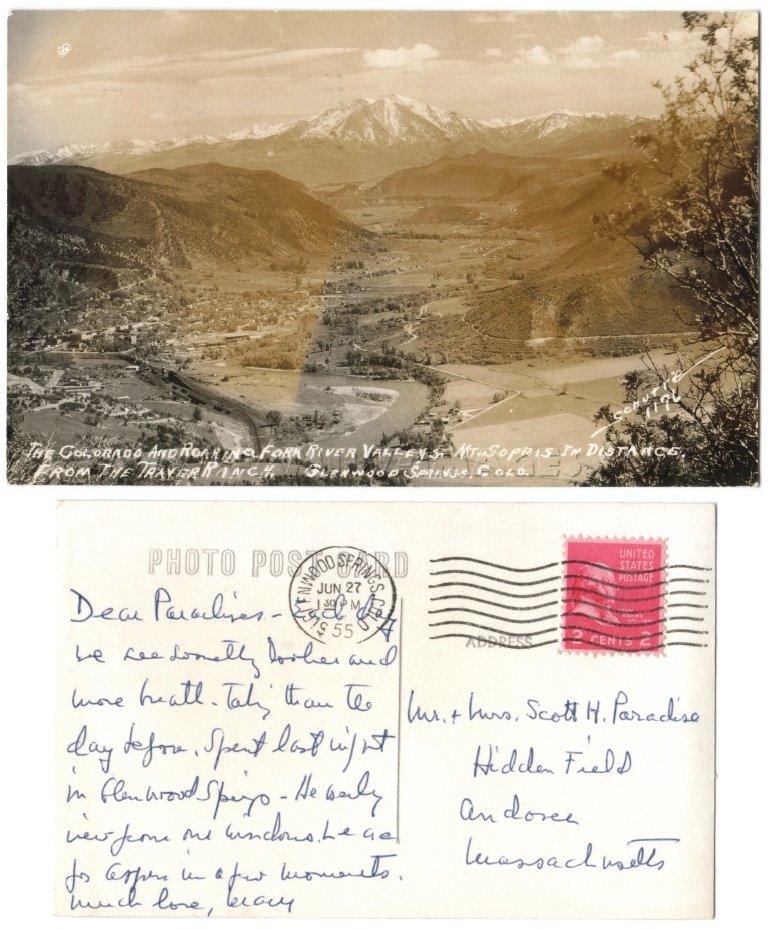 THE COLORADO AND ROARING FORK RIVER VALLEYS. MT. SOPRIS IN DISTANCE,
FROM THE TRAVER RANCH. GLENWOOD SPRINGS, COLO.
SCHUTTE
1176
PHOTO POST CARD
GLENWOOD SPRINGS COLO
JUN 27
1 30 PM
1955
UNITED
STATES
POSTAGE
ADAMS
2 CENTS 2
ADDRESS
Dear Paradises - Each day
we see something and
more breath-taking than the
day before. Spent last night
in Glenwood Springs - Heavenly
view from our windows.
for Aspen in a few moments.
much love, Mary
Mr. + Mrs. Scott H. Paradise
Hidden Field
Andover
Massachusetts